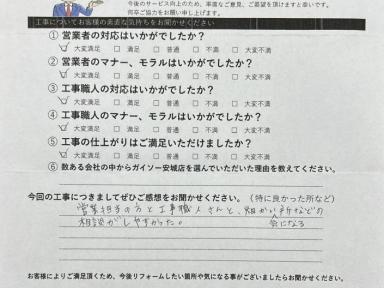 今後のサービス向上のため、率直なご意見、ご要望を頂けますと幸いです。
何卒ご協力をお願い申し上げます。
工事についてお客様の素直な気持ちをお聞かせください
① 営業者の対応はいかがでしたか?
☑ 大変満足 □ 満足 □ 普通 □ 不満 □ 大変不満
② 営業者のマナー、モラルはいかがでしたか?
☑ 大変満足 □ 満足 □ 普通 □ 不満 □ 大変不満
③ 工事職人の対応はいかがでしたか?
☑ 大変満足 □ 満足 □ 普通 □ 不満 □ 大変不満
④ 工事職人のマナー、モラルはいかがでしたか?
☑ 大変満足 □ 満足 □ 普通 □ 不満 □ 大変不満
⑤ 工事の仕上がりはご満足いただけましたか?
☑ 大変満足 □ 満足 □ 普通 □ 不満 □ 大変不満
⑥ 数ある会社の中からガイソー安城店を選んでいただいた理由を教えてください。
今回の工事につきましてぜひご感想をお聞かせください。(特に良かった所など)
営業担当の方と工事職人さんと、細かい所などの
気になる
相談がしやすかった。
お客様によりご満足頂くため、今後リフォームしたい箇所や気になる事がございましたらお聞かせください。